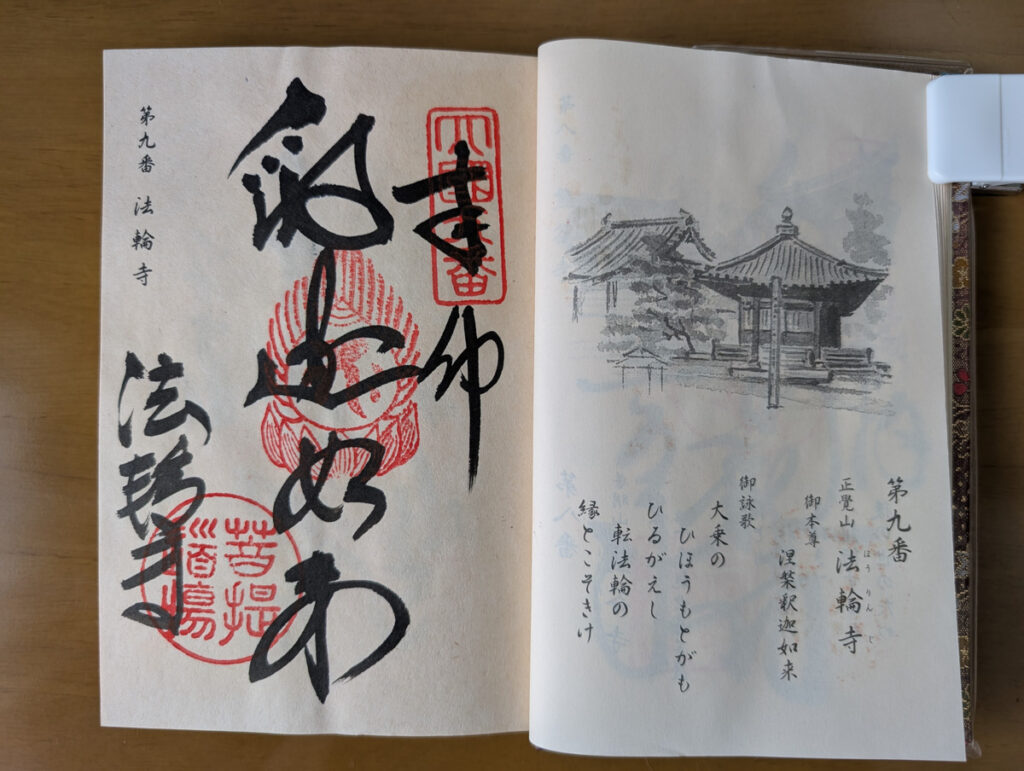 第九番
正覺山 法輪寺
ほうりんじ
御本尊 涅槃釈迦如来
御詠歌
大乗の
ひほうもとがも
ひるがえし
転法輪の
縁とこそきけ
奉納
釈迦如来
菩提
道場
法輪寺
第九番 法輪寺